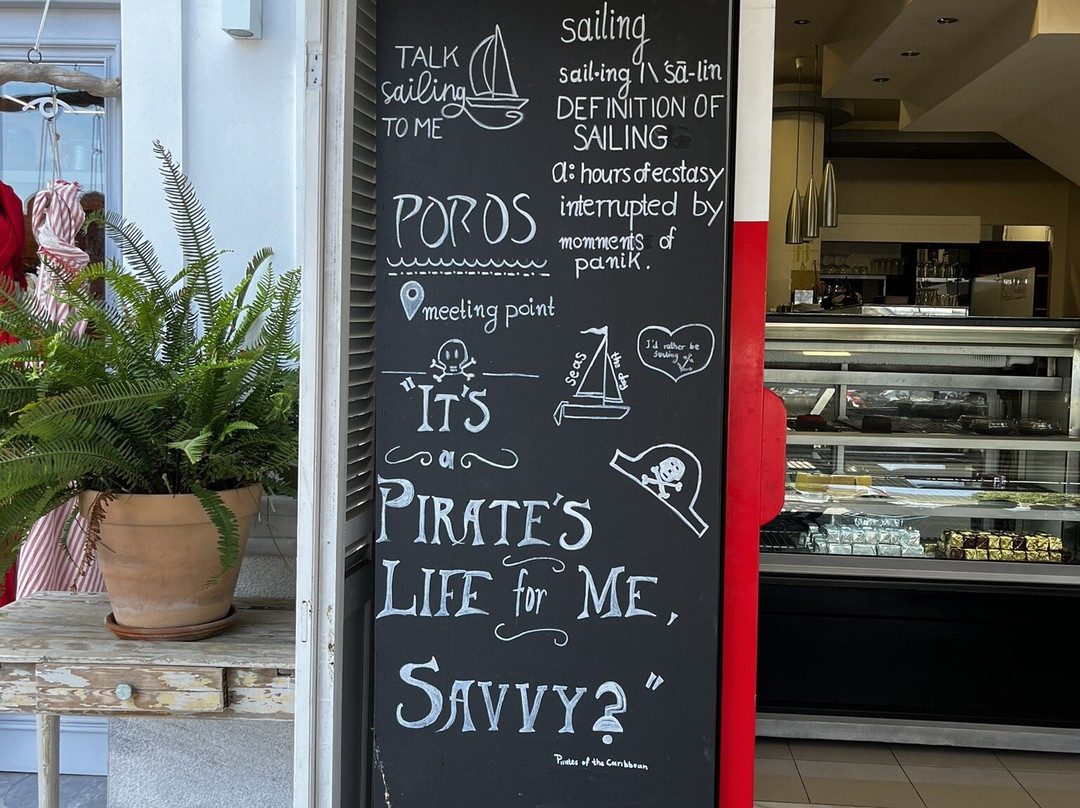 TALK
sailing
TO ME
sailing
sail·ing |\ 'sā-lin
DEFINITION OF
SAILING
a: hours of ecstasy
interrupted by
momments of
panik.
POROS
meeting point
seas
the day
I'd rather be
sailing
"IT'S
a
PIRATE'S
LIFE for ME,
SAVVY?"
Pirates of the Caribbean